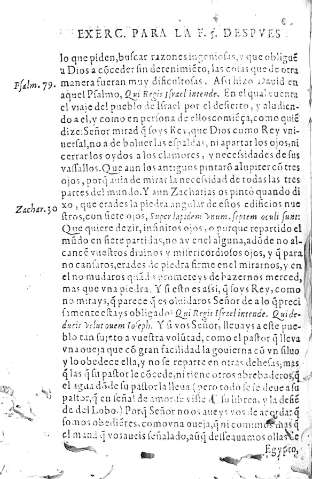 EXERC. PARA LA F. §. DESPVES
lo que piden, buscar razones ingeniosas, y que obliguē
a Dios a cōceder sin detenimiēto, las cosas que de otra
Psalm. 79. manera fueran muy dificultosas. Assi hizo Dauid en
aquel Psalmo, Qui Regis Israel intende. En el qual cuenta
el viaje del pueblo de Israel por el desierto, y aludien-
do a el, y como en persona de ellos comiēça, como quiē
dize: Señor mirad q̄ soys Rey, que Dios como Rey vni-
uersal, no a de boluer las espaldas, ni apartar los ojos, ni
cerrar los oydos a los clamores, y necessidades de sus
vassallos. Que aun los antiguos pintarō a Iupiter cō tres
ojos, porq̄ auia de mirar la necessidad de todas las tres
partes del mundo. Y aun Zacharias os pintò quando di
Zachar. 30 xo, que erades la piedra angular de estos edificios nue
stros, con siete ojos, super lapidem vnum septem oculi sunt:
Que quiere dezir, infinitos ojos, o porque repartido el
mūdo en siete partidas, no ay en el alguna, adōde no al-
cancē vuestros diuinos y misericordiosos ojos, y q̄ para
no cansaros, erades de piedra firme en el mirarnos, y en
el no mudaros quādo prometeys de hazernos merced,
mas que vna piedra. Y si esto es assi, q̄ soys Rey, como
no mirays, q̄ parece q̄ es oluidaros Señor de a lo q̄ preci
samente estays obligado? Qui Regis Israel intende. Qui de-
ducis velut ouem Ioseph. Y ū vos Señor, lleuays a este pue-
blo tan sujeto a vuestra volūtad, como el pastor q̄ lleua
vna oueja que cō gran facilidad la gouierna cō vn siluo
y lo obedece ella, y no se reparte en otras dehesas, mas
q̄ las q̄ su pastor le cōcede, ni tiene otros abrebaderos, q̄
el agua dōde su pastor la lleua (pero todo se le deue a su
pastor, q̄ en señal de amor se viste d̄ su librea, y la defiē
de del Lobo.) Porq̄ Señor no os aueys vos de acordar q̄
so nos obediētes, como vna oueja, q̄ ni comimos mas q̄
el manà q̄ vos aueis señalado, aūq̄ desseauamos ollas de
Egypto,